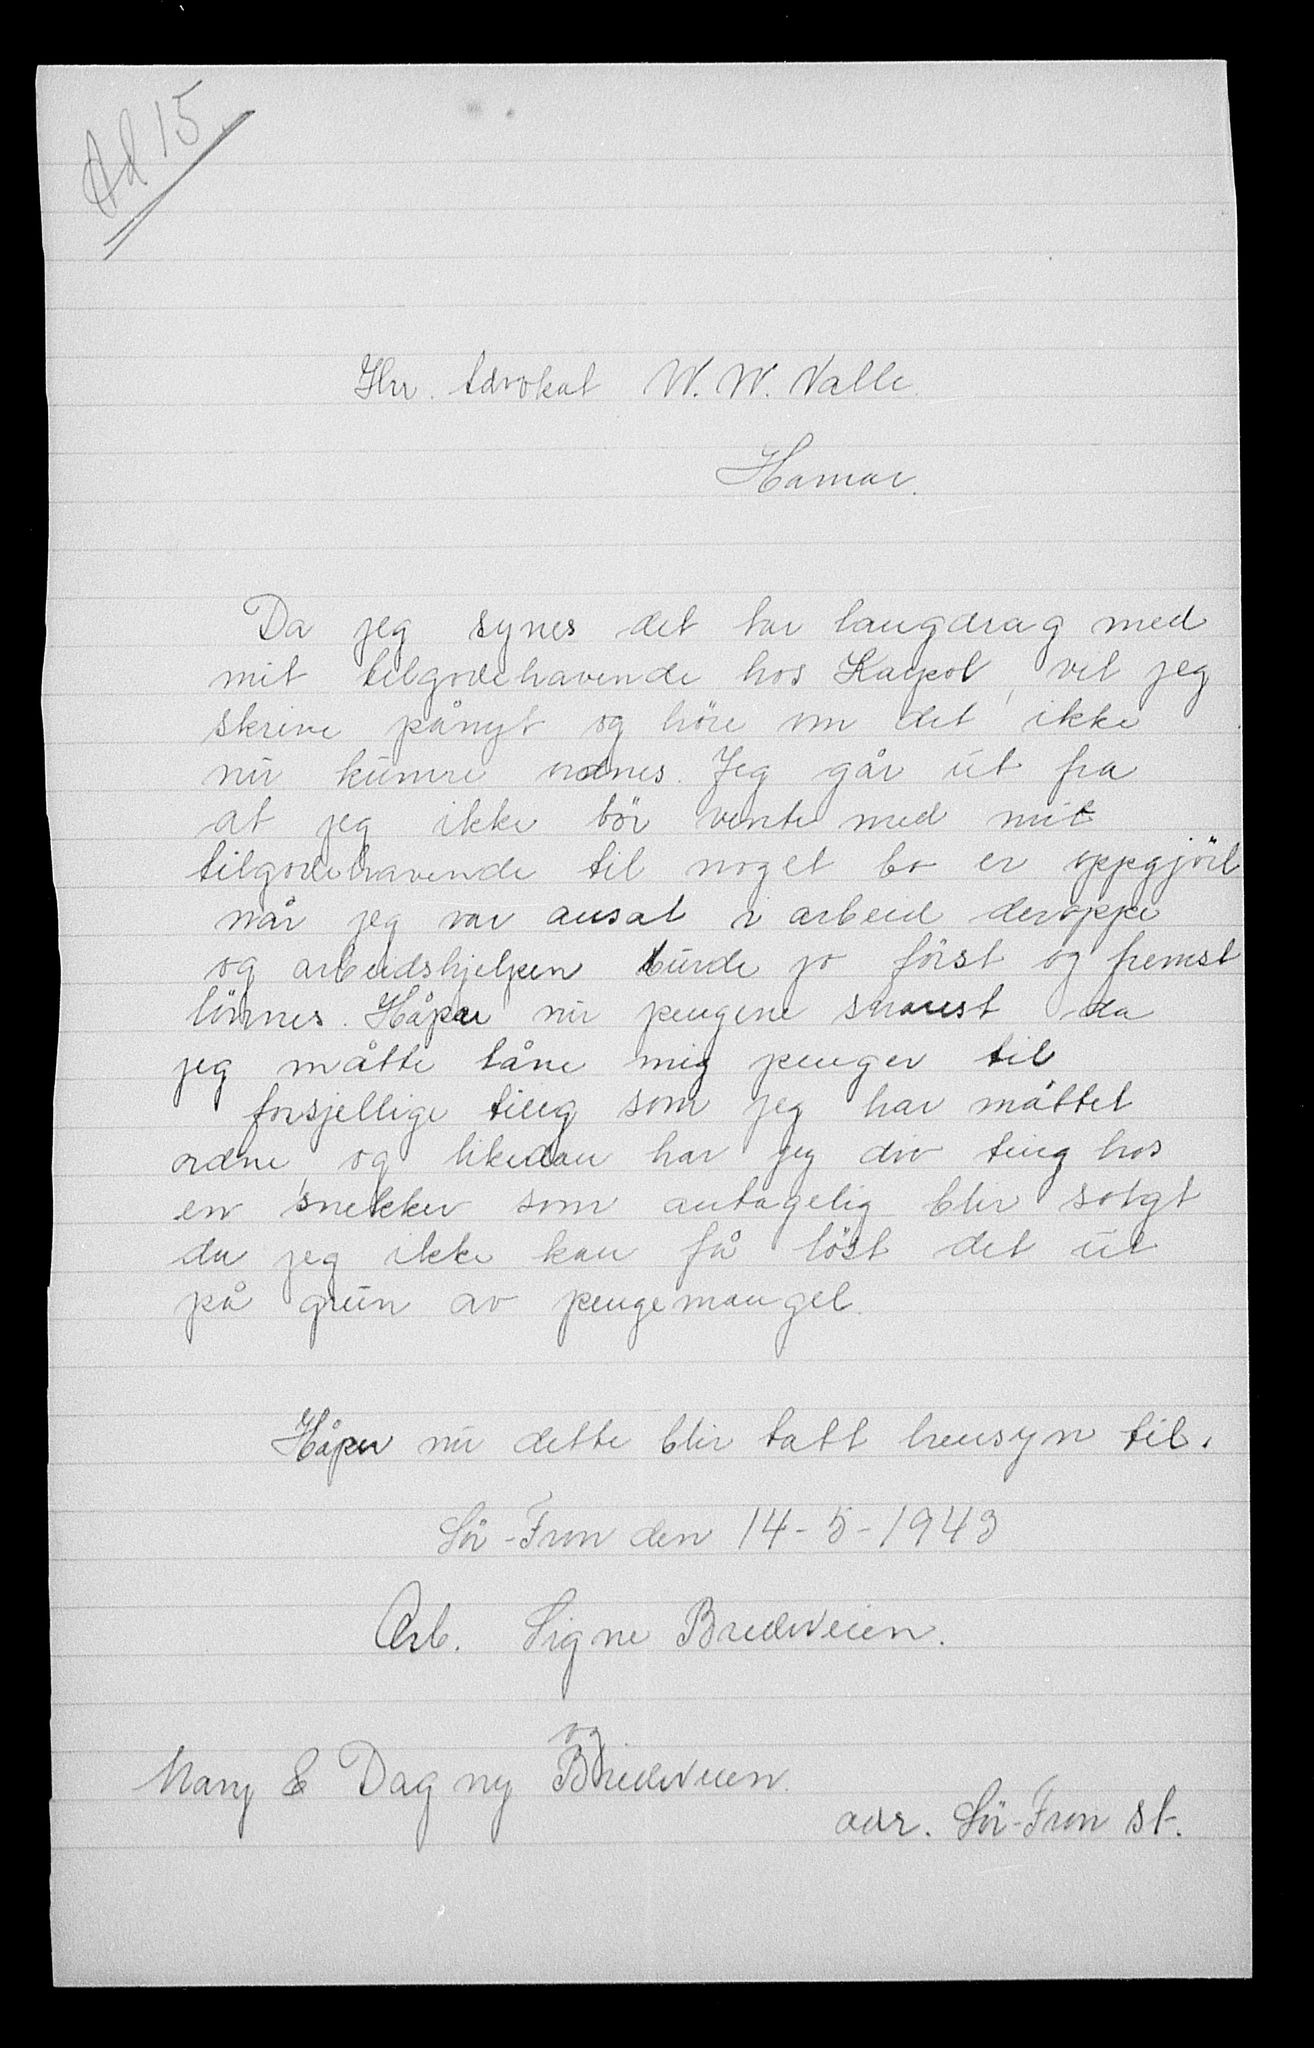 Ad 15
Hrr. Advokat W. W. Valle.
Hamar.
Da jeg synes det tar langdrag med
mit tilgodehavende hos Karpol, vil jeg
skrive pånyt og höre om det ikke
nu kunne ordnes. Jeg går ut fra
at jeg ikke bör vente med mit
tilgodehavende til noget bo er oppgjört
når jeg var ansat i arbeid deroppe
og arbeidshjelpen burde jo först og fremst
lönnes. Håper nu pengene snarest da
jeg måtte låne mig penger til
forsjellige ting som jeg har måttet
ordne og likedan har jeg div ting hos
en snekker som antagelig blir solgt
da jeg ikke kan få löst det ut
på grun av pengemangel.
Håper nu dette blir tatt hensyn til.
Sör-Fron den 14-5-1943
Arb. Signe Bredeveien.
og
Mary E Dagny Bredeveien.
adr. Sör-Fron st.